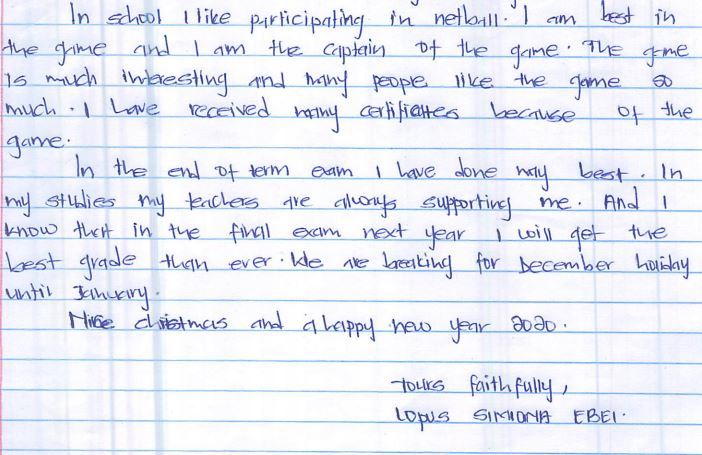 In school I like participating in netball. I am best in
the game and I am the captain of the game. The game
is much interesting and many people like the game so
much. I have received many certificates because of the
game.
In the end of term exam I have done my best. In
my studies my teachers are always supporting me. And I
know that in the final exam next year I will get the
best grade than ever. We are breaking for December holiday
until January.
Nice christmas and a happy new year 2020.
Yours faithfully,
LOPUS SIMIONA EBEI.